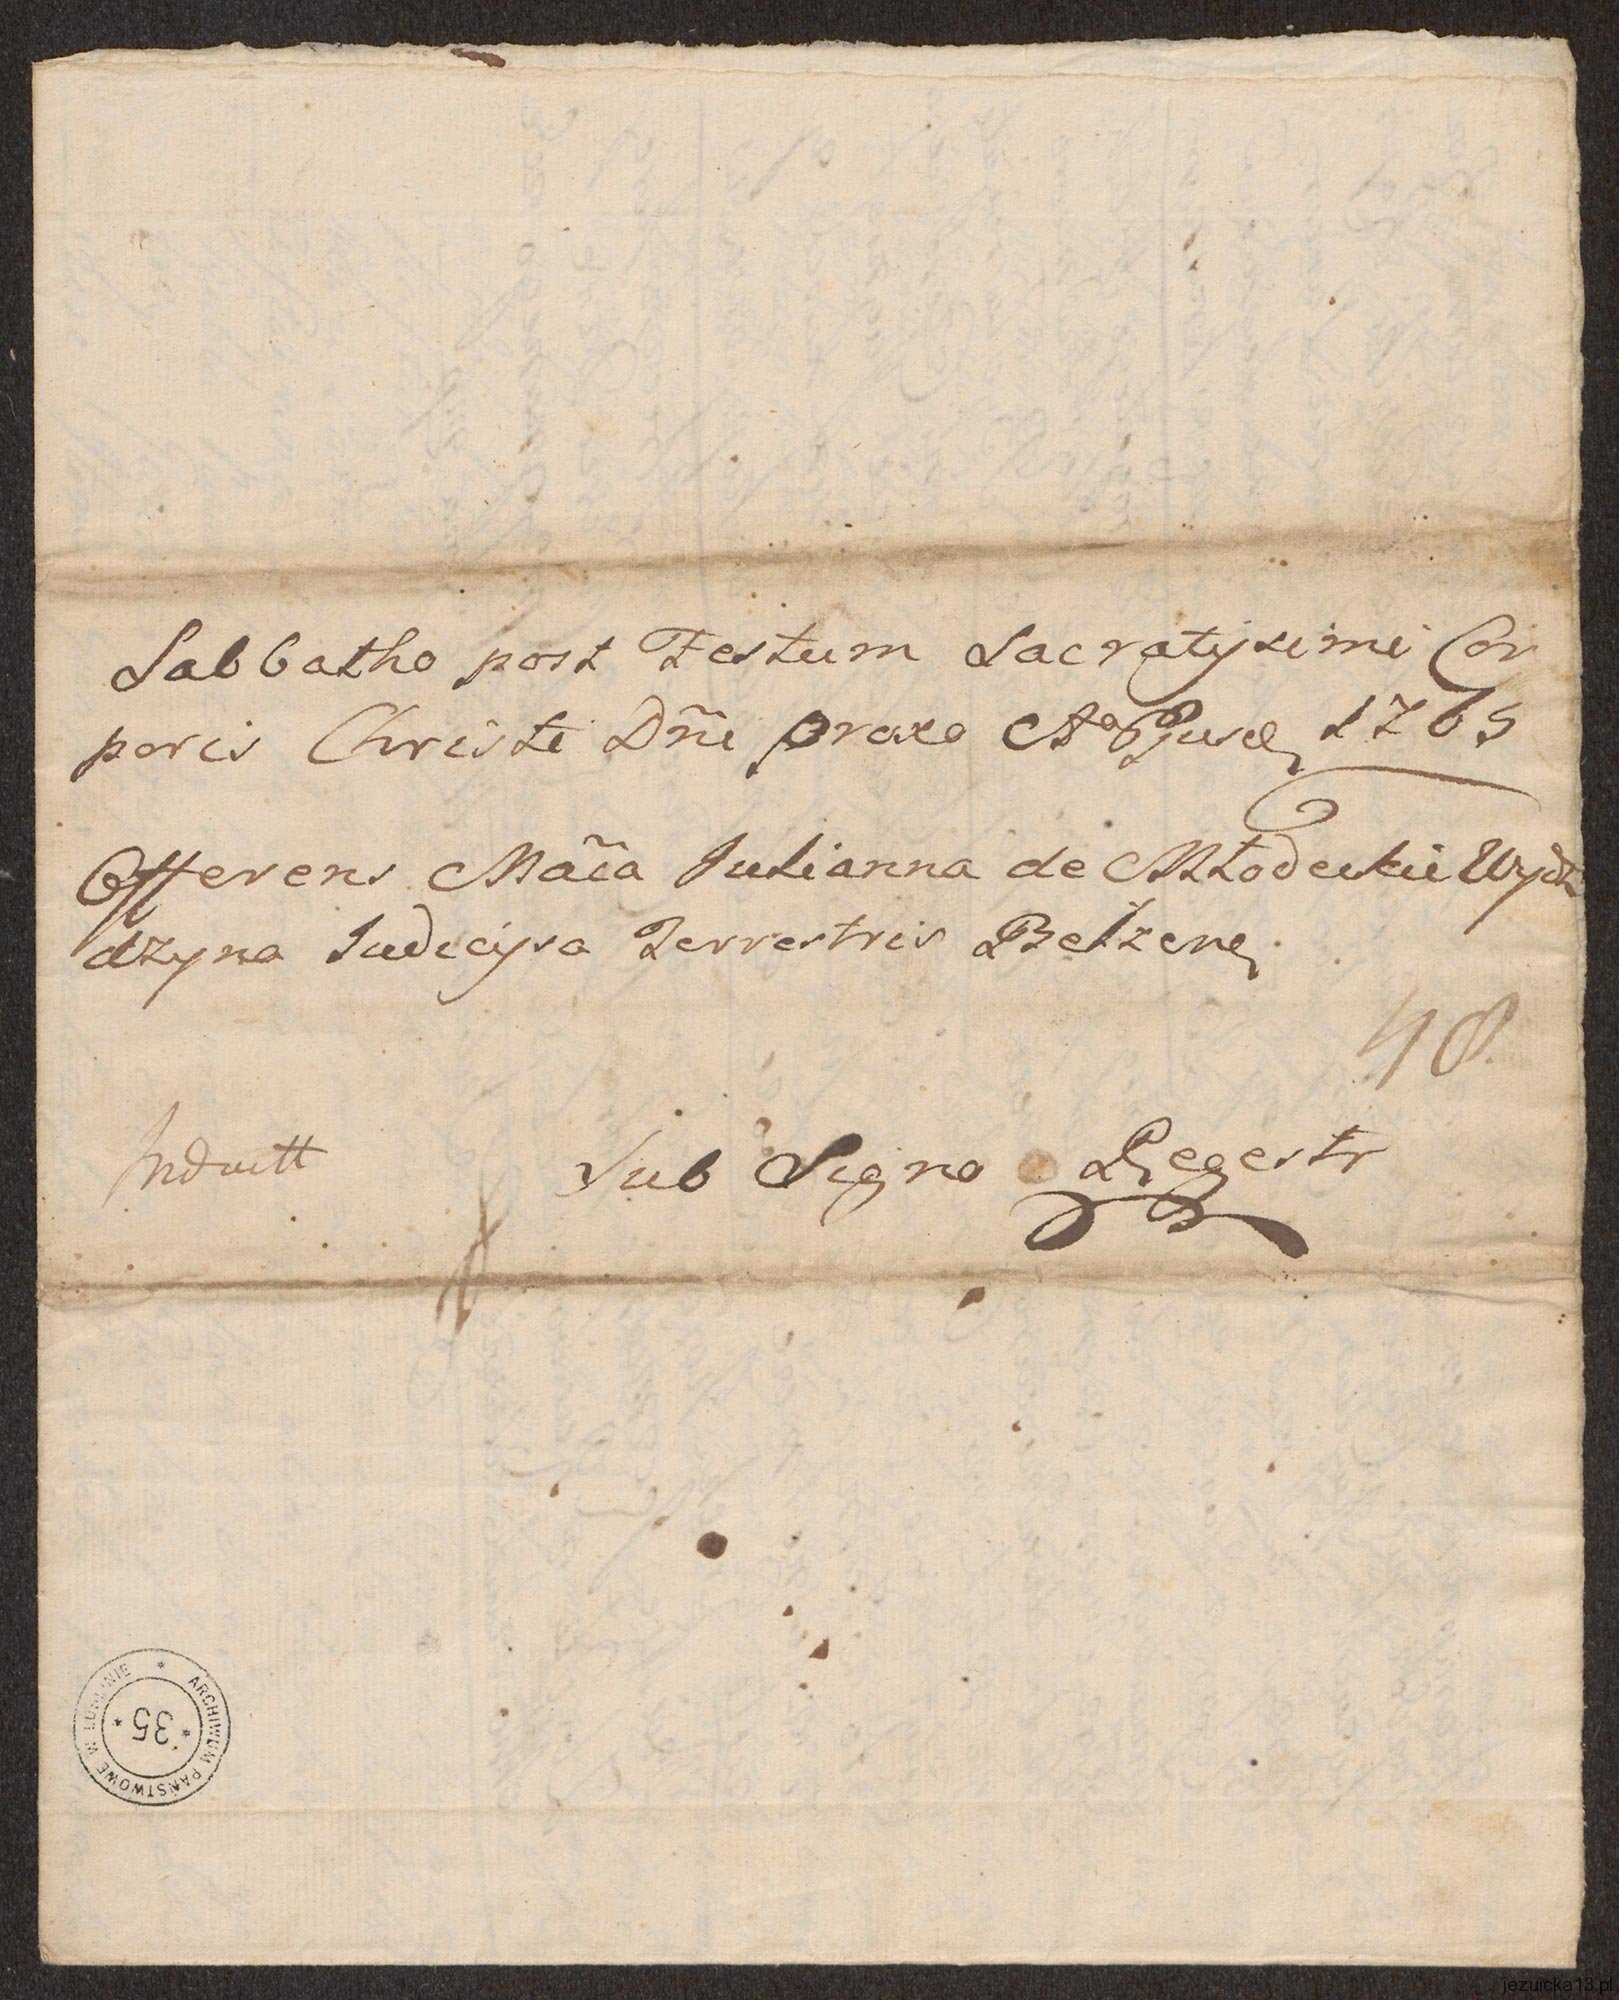 Sabbatho post Festum Sacratyssimi Cor
poris Christi Dñi proxo Ao 1765
Offerens Mãca Julianna de Młodeckie Wyd
dżyna Judicysa Terrestris Bełzens
48
Induxit Sub Signo Regestr
ARCHIWUM PAŃSTWOWE W LUBLINIE
35
jezuicka13.pl